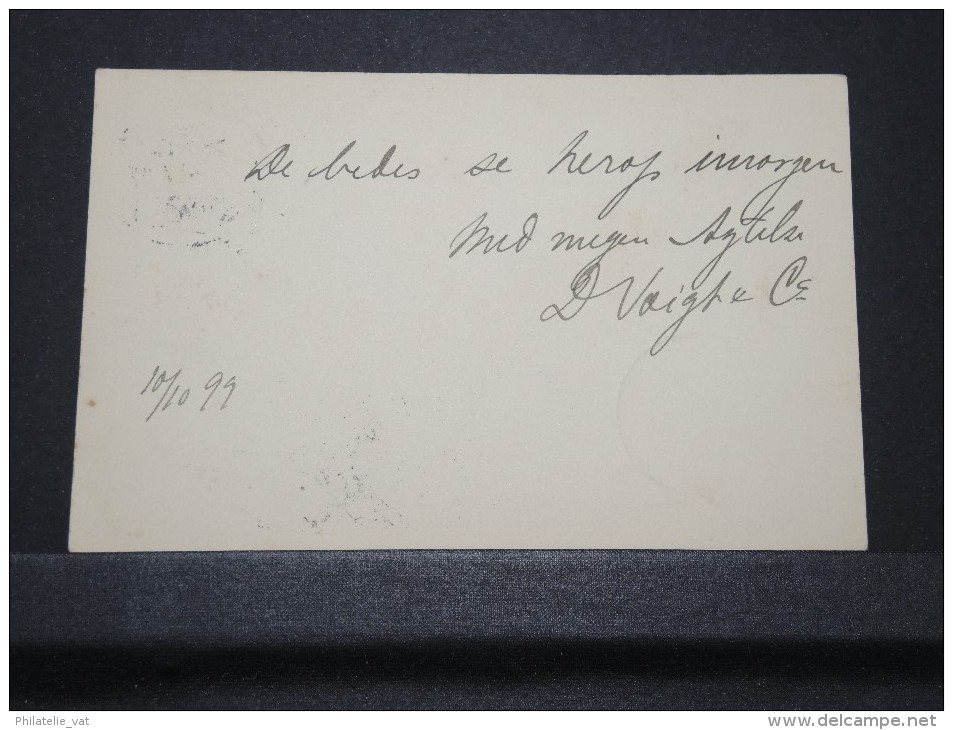 De bedes se herop imorgen
Med megen Agtelse
D Voigt & Co
10/10 99
Philatelie_vat
www.delcampe.net